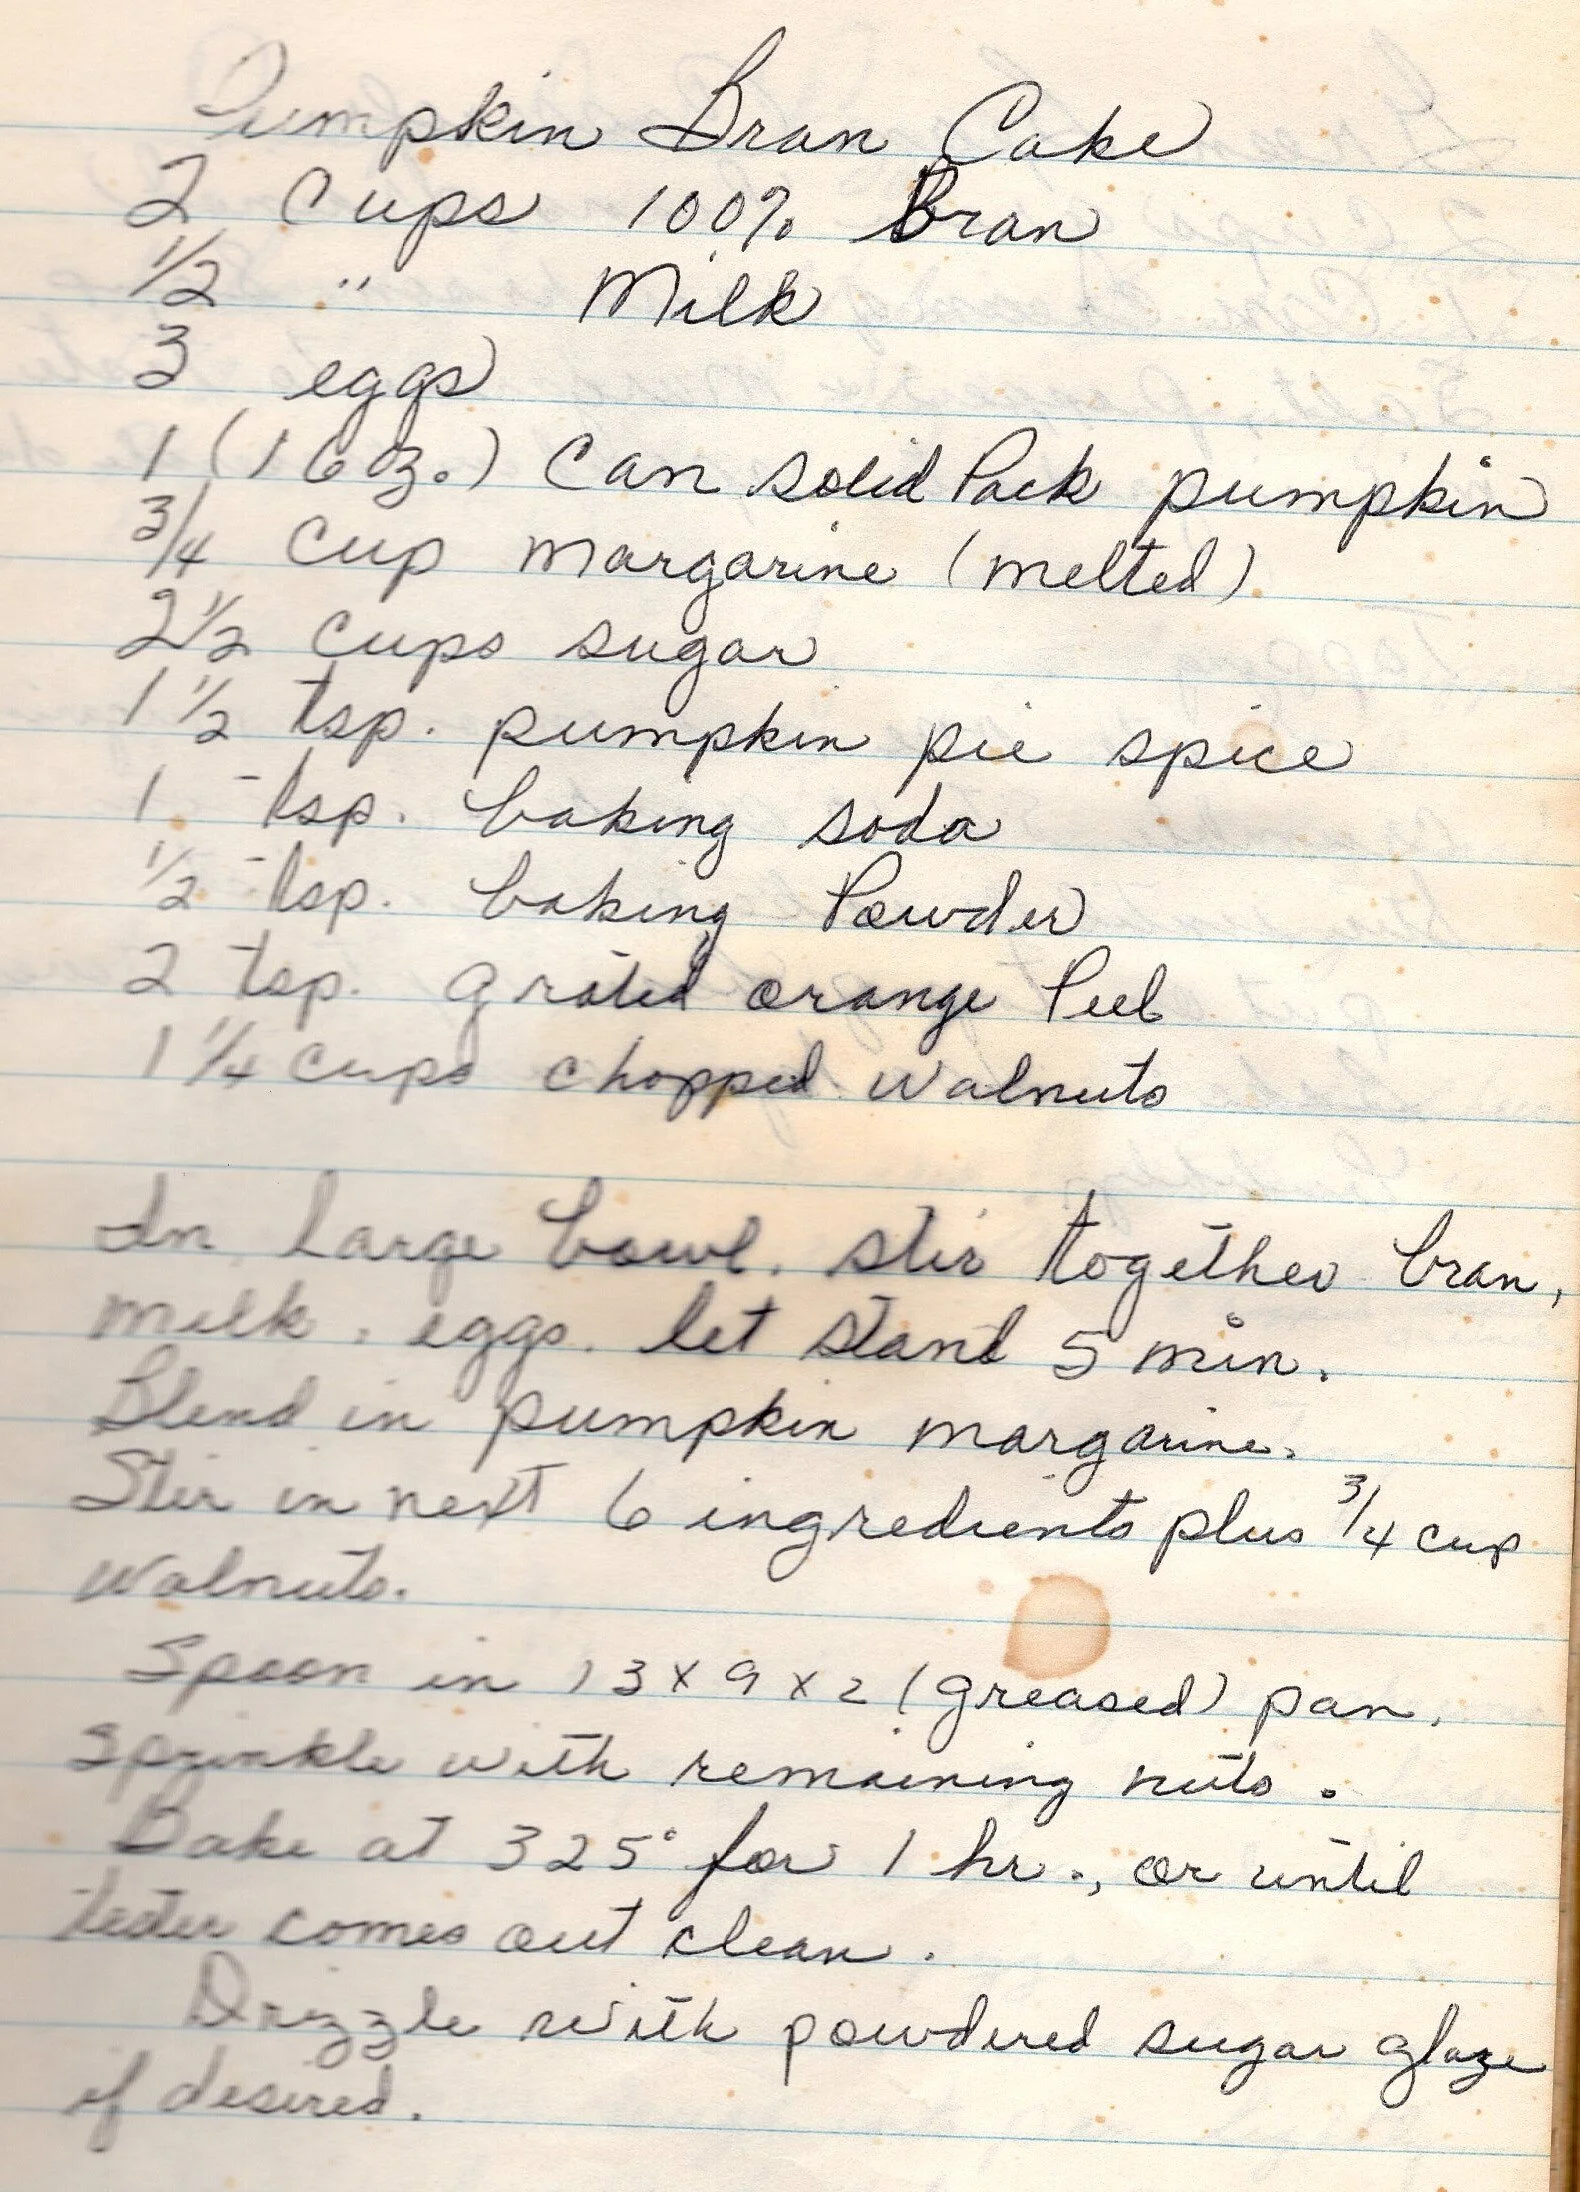 Pumpkin Bran Cake
2 Cups 100% Bran
1/2 " Milk
3 eggs
1 (16 oz.) Can solid Pack pumpkin
3/4 Cup margarine (melted)
2 1/2 Cups sugar
1 1/2 tsp. pumpkin pie spice
1 tsp. baking soda
1/2 tsp. baking Powder
2 tsp. grated orange Peel
1 1/4 cups chopped walnuts
In large bowl, stir together bran,
milk, eggs. let stand 5 min.
Blend in pumpkin margarine.
Stir in next 6 ingredients plus 3/4 cup
walnuts.
Spoon in 13 x 9 x 2 (greased) pan.
Sprinkle with remaining nuts.
Bake at 325° for 1 hr., or until
tester comes out clean.
Drizzle with powdered sugar glaze
if desired.